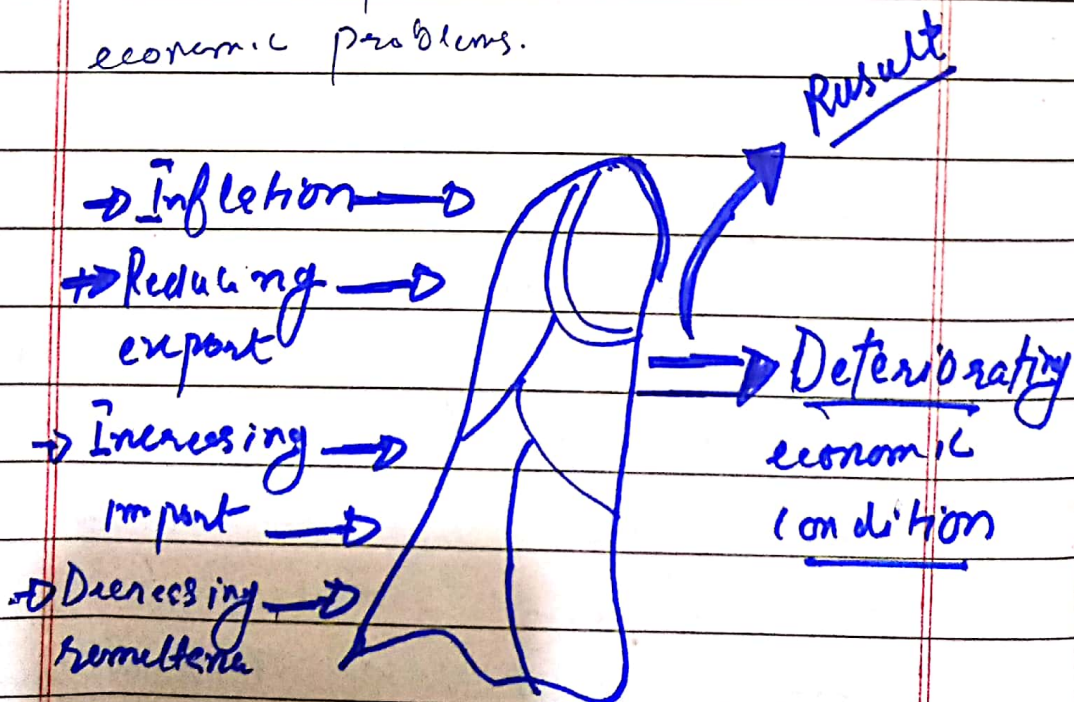 economic problems.
Result
→ Infletion →
→ Reducing →
export
→ Increasing →
import →
→ Decreasing →
remettence
→ Deteriorating
economic
condition